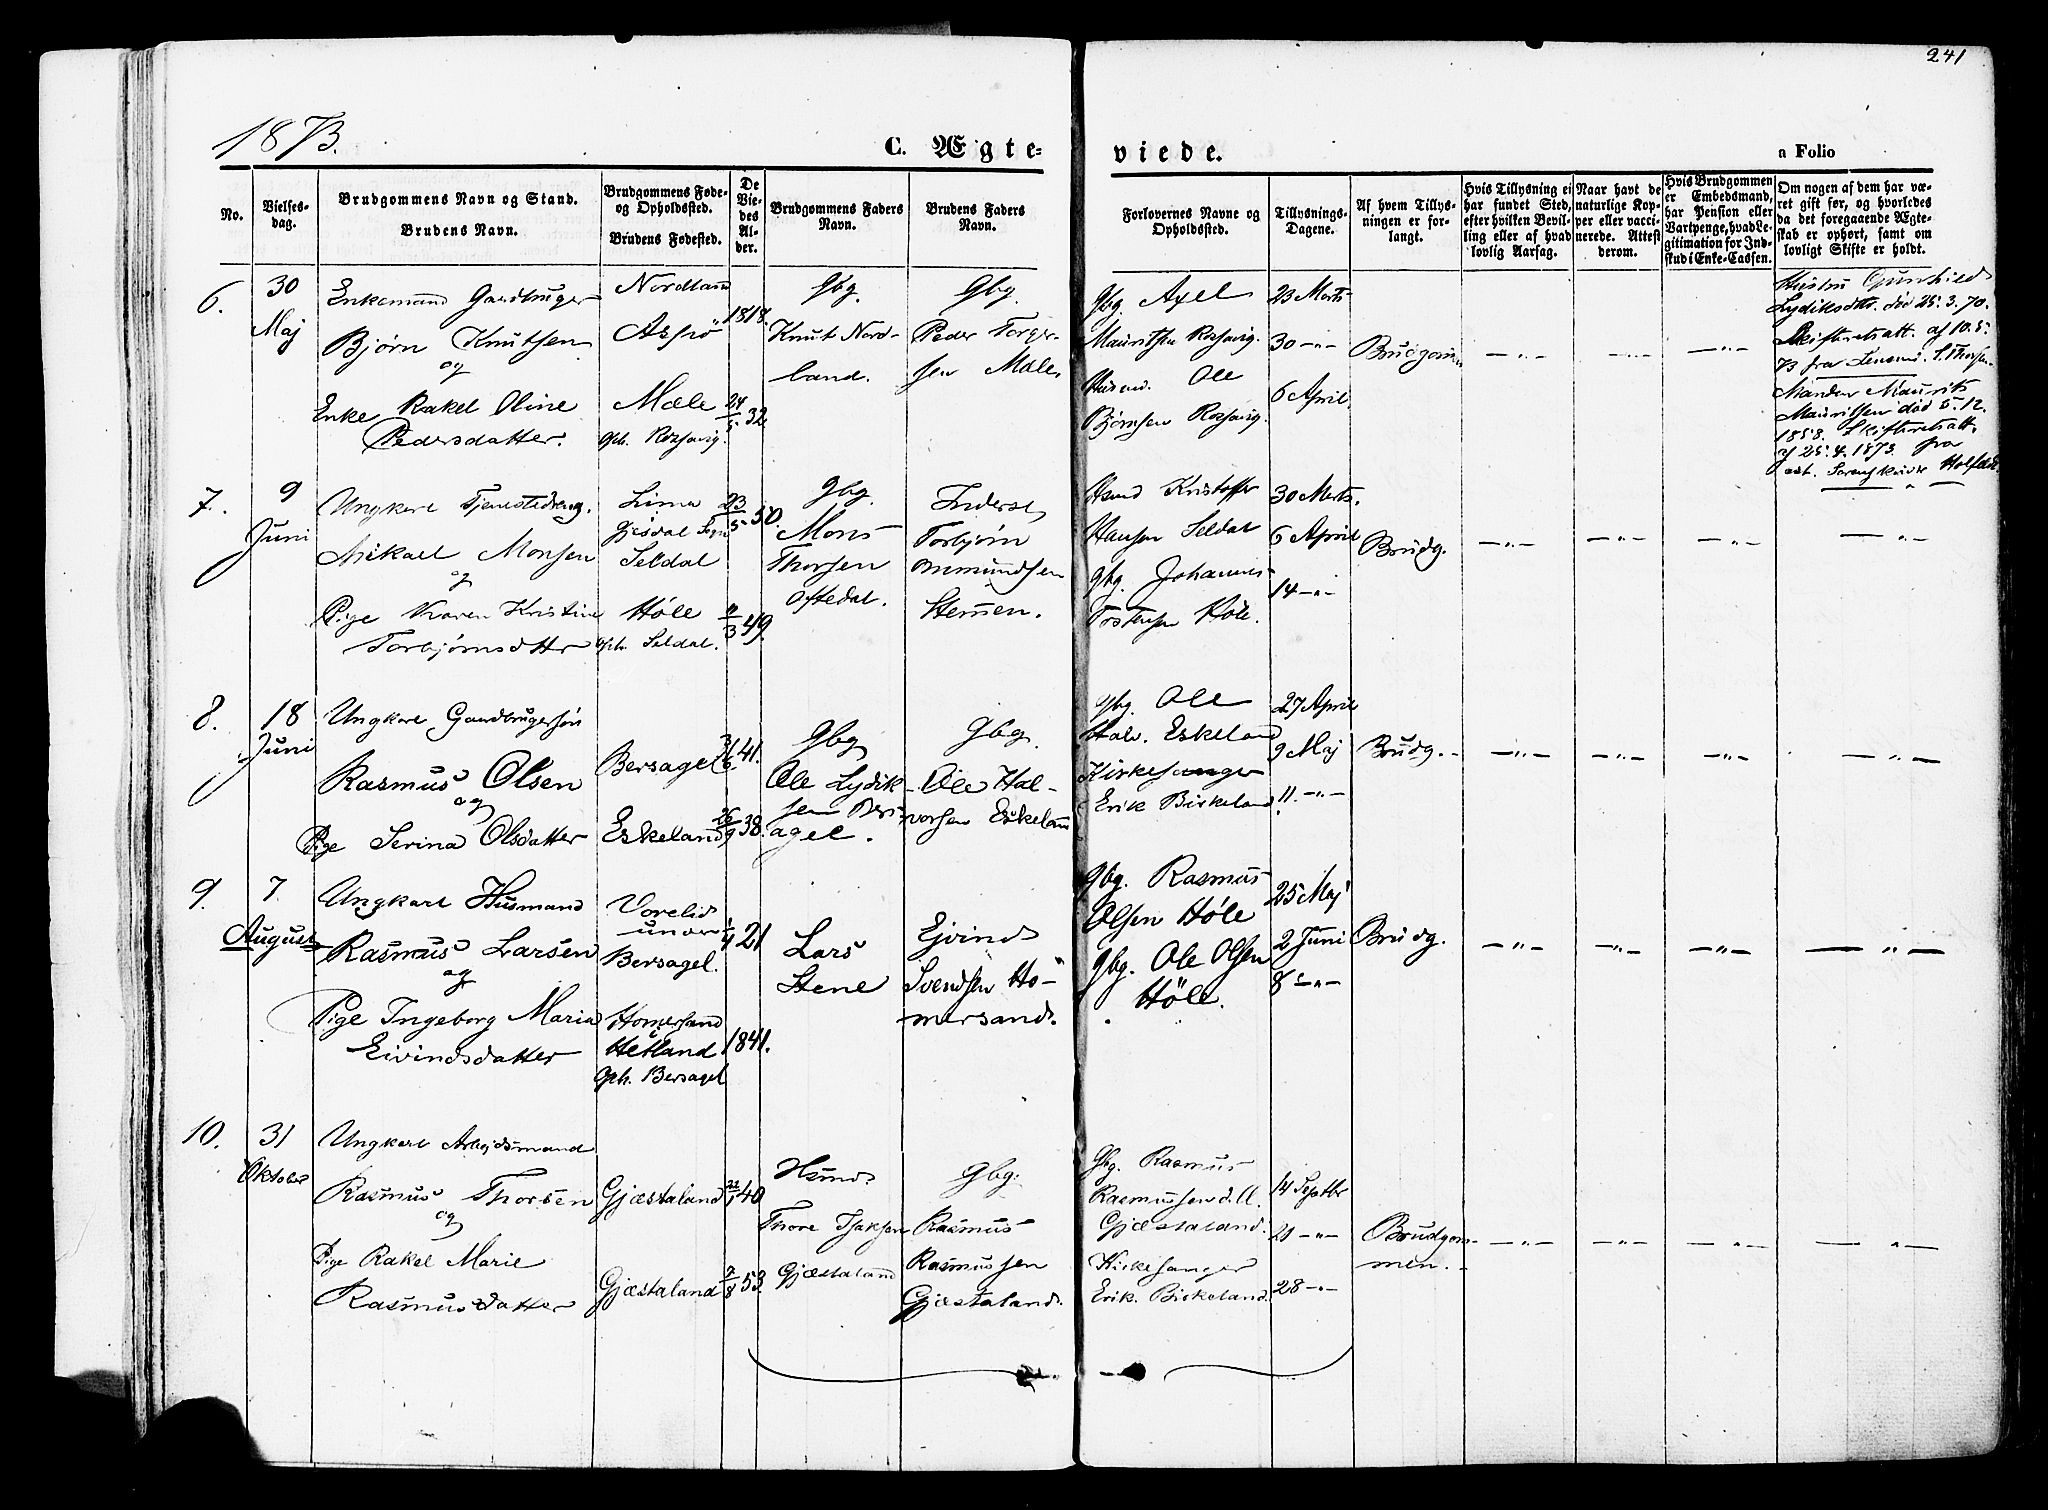 241
1873.
C. Ægte-
viede.
a Folio
No.
Vielses-
dag.
Brudgommens Navn og Stand.
Brudens Navn.
Brudgommens Føde-
og Opholdssted.
Brudens Fødested.
De
Vie-
des
Al-
der.
Brudgommens Faders
Navn.
Brudens Faders
Navn.
Forlovernes Navne og
Opholdssted.
Tillysnings-
Dagene.
Af hvem Tillys-
ningen er for-
langt.
Hvis Tillysning ei
har fundet Sted,
efter hvilken Bevil-
ling eller af hvad
lovlig Aarsag.
Naar havt de
naturlige Kop-
per eller vacci-
nerede. Attest
derom.
Hvis Brudgommen
er Embedsmand,
har Pension eller
Vartpenge, hvad Le-
gitimation for Ind-
skud i Enke-Cassen.
Om nogen af dem har væ-
ret gift før, og hvorledes
da det foregaaende Ægte-
skab er ophørt, samt om
lovligt Skifte er holdt.
6.
30
Maj
Enkemand Gardbruger
Bjørn Knutsen
og
Enke Rakel Oline
Pedersdatter.
Nordland
Aspø
Mæle
Oph. Rossavig.
1818.
24/5 32
Gbg.
Knut Nord-
land.
Gbg.
Peder Torger-
sen Mæle.
Gbg. Axel
Mauritsen Rossavig.
Husmd. Ole
Bjørnsen Rossavig.
23 Marts
30 -"-
6 April.
Brudgom.
-"-
-"-
-"-
Hustru Gunhild
Lydiksdtr. død 25.3.70.
Skifteretsatt. af 10.5.
73 fra Lensmd. S. Thorsen
Manden Maurits
Mauritsen død 5.12.
1858. Skifteretsatt.
af 25.4.1873. fra
Sorenskriver
7.
9
Juni
Ungkarl Tjenestedreng.
Mikael Monsen
og
Pige Karen Kristine
Torbjørnsdtr
Lima
Gjesdal Sogn
Seldal
Høle
Oph. Seldal.
23/5 50.
11/3 49
Gbg.
Mons
Thorsen
Oftedal.
Inderst
Torbjørn
Omundsen
Stemen.
Hsmd Kristoffer
Hansen Seldal
gbg. Johannes
Tostensen Høle.
30 Marts.
6 April
14 -"-
Brudg.
-"-
-"-
-"-
-"-
8.
18
Juni
Ungkarl Gaardbrugersøn
Rasmus Olsen
og
Pige Serina Olsdatter
Bersagel
Eskeland
41.
26/9 38.
Gbg
Ole Lydik-
sen Bers-
agel.
Gbg.
Ole Hal-
vorsen Eskeland
gbg. Ole
Halv. Eskeland
Kirkesanger
Erik Birkeland
27 April
9 Maj
11. -"-
Brudg.
-"-
-"-
-"-
-"-
9.
7.
August
Ungkarl Husmand
Rasmus Larsen
og
Pige Ingeborg Maria
Eivindsdatter
Vorelid
under
Bersagel.
Homersand
i
Hetland
Oph. Bersagel
1/4 21
1841.
Lars
Stene
Ejvind
Svendsen Ho-
mersand.
gbg. Rasmus
Olsen Høle
gbg. Ole Olsen
Høle.
25 Maj
2 Juni
8 -"-
Brudg.
-"-
-"-
-"-
-"-
10.
31
Oktober
Ungkarl Arbejdsmand
Rasmus Thorsen
og
Pige Rakel Marie
Rasmusdatter
Gjæstaland
Gjæstaland
40
7/8 53.
Hsmd
Thore Isaksen
Gjæstaland
Gbg.
Rasmus
Rasmussen
Gjæstaland.
Gbg. Rasmus
Rasmussen d.Æ.
Gjæstaland.
Kirkesanger
Erik. Birkeland.
14 Septbr
21 -"-
28 -"-
Brudgom-
men.
-"-
-"-
-"-
-"-